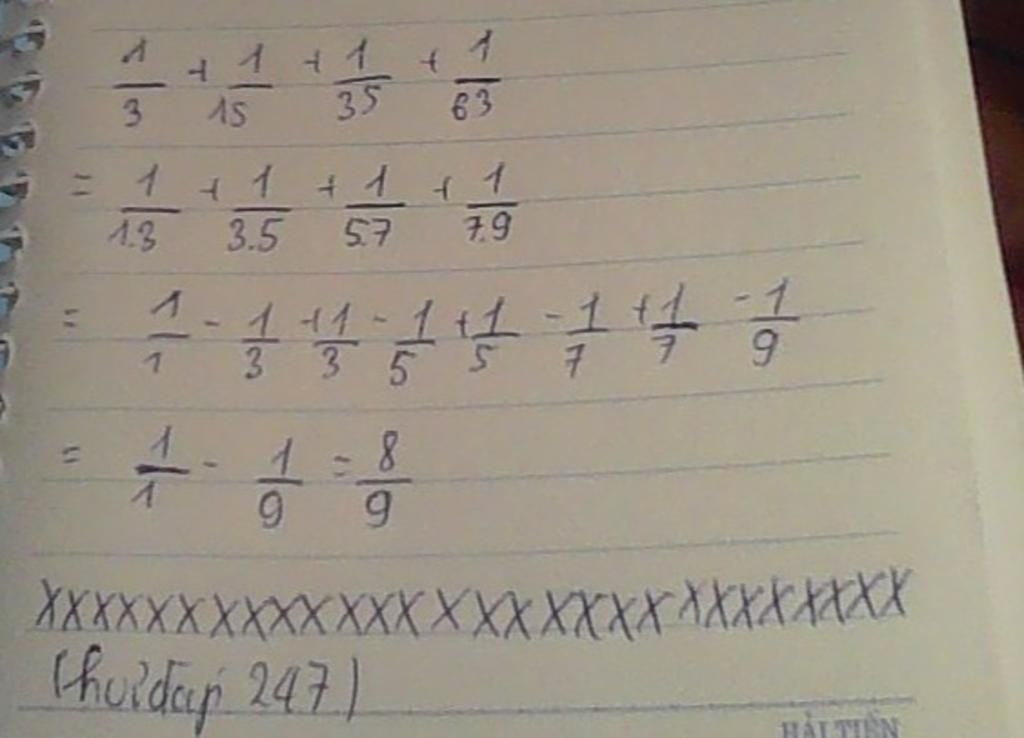 1/3 + 1/15 + 1/35 + 1/63
= 1/1.3 + 1/3.5 + 1/5.7 + 1/7.9
= 1/1 - 1/3 + 1/3 - 1/5 + 1/5 - 1/7 + 1/7 - 1/9
= 1/1 - 1/9 = 8/9
XXXXXXXXXXXXXXXXXXXXXXXXXXXXX
(hỏi đáp 247)
HẢI TIẾN